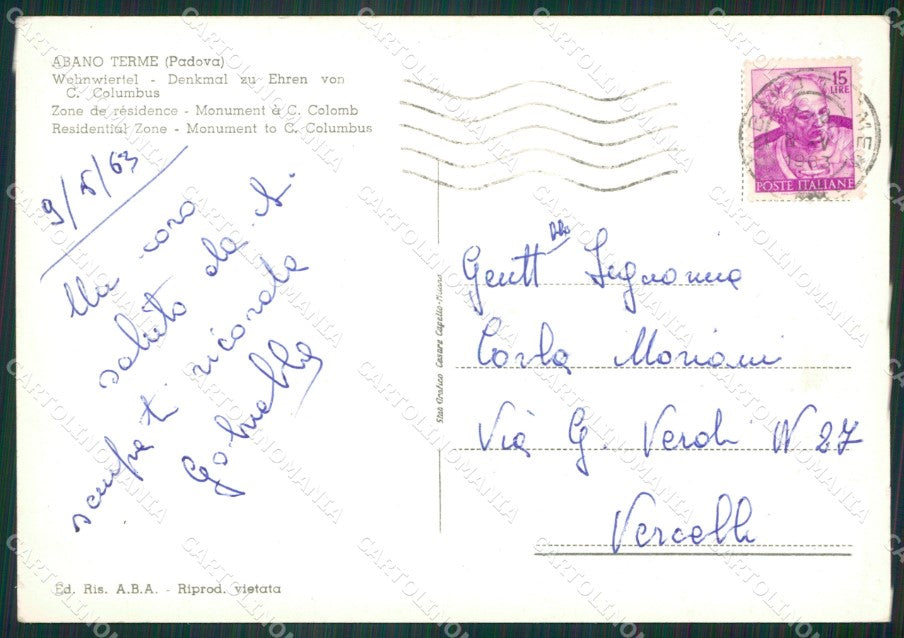 ABANO TERME (Padova)
Wohnwiertel - Denkmal zu Ehren von
C. Columbus
Zone de résidence - Monument à C. Colomb
Residential Zone - Monument to C. Columbus
9/5/63
Un caro
saluto da A.
sempre ti ricorda
Gabriella
Ed. Ris. A.B.A. - Riprod. vietata
Stab. Grafico Cesare Capello - Milano
15
LIRE
POSTE ITALIANE
1963
Gentt
Signorina
Carla Mariani
Via G. Verdi N 27
Vercelli
CARTOLINOMANIA